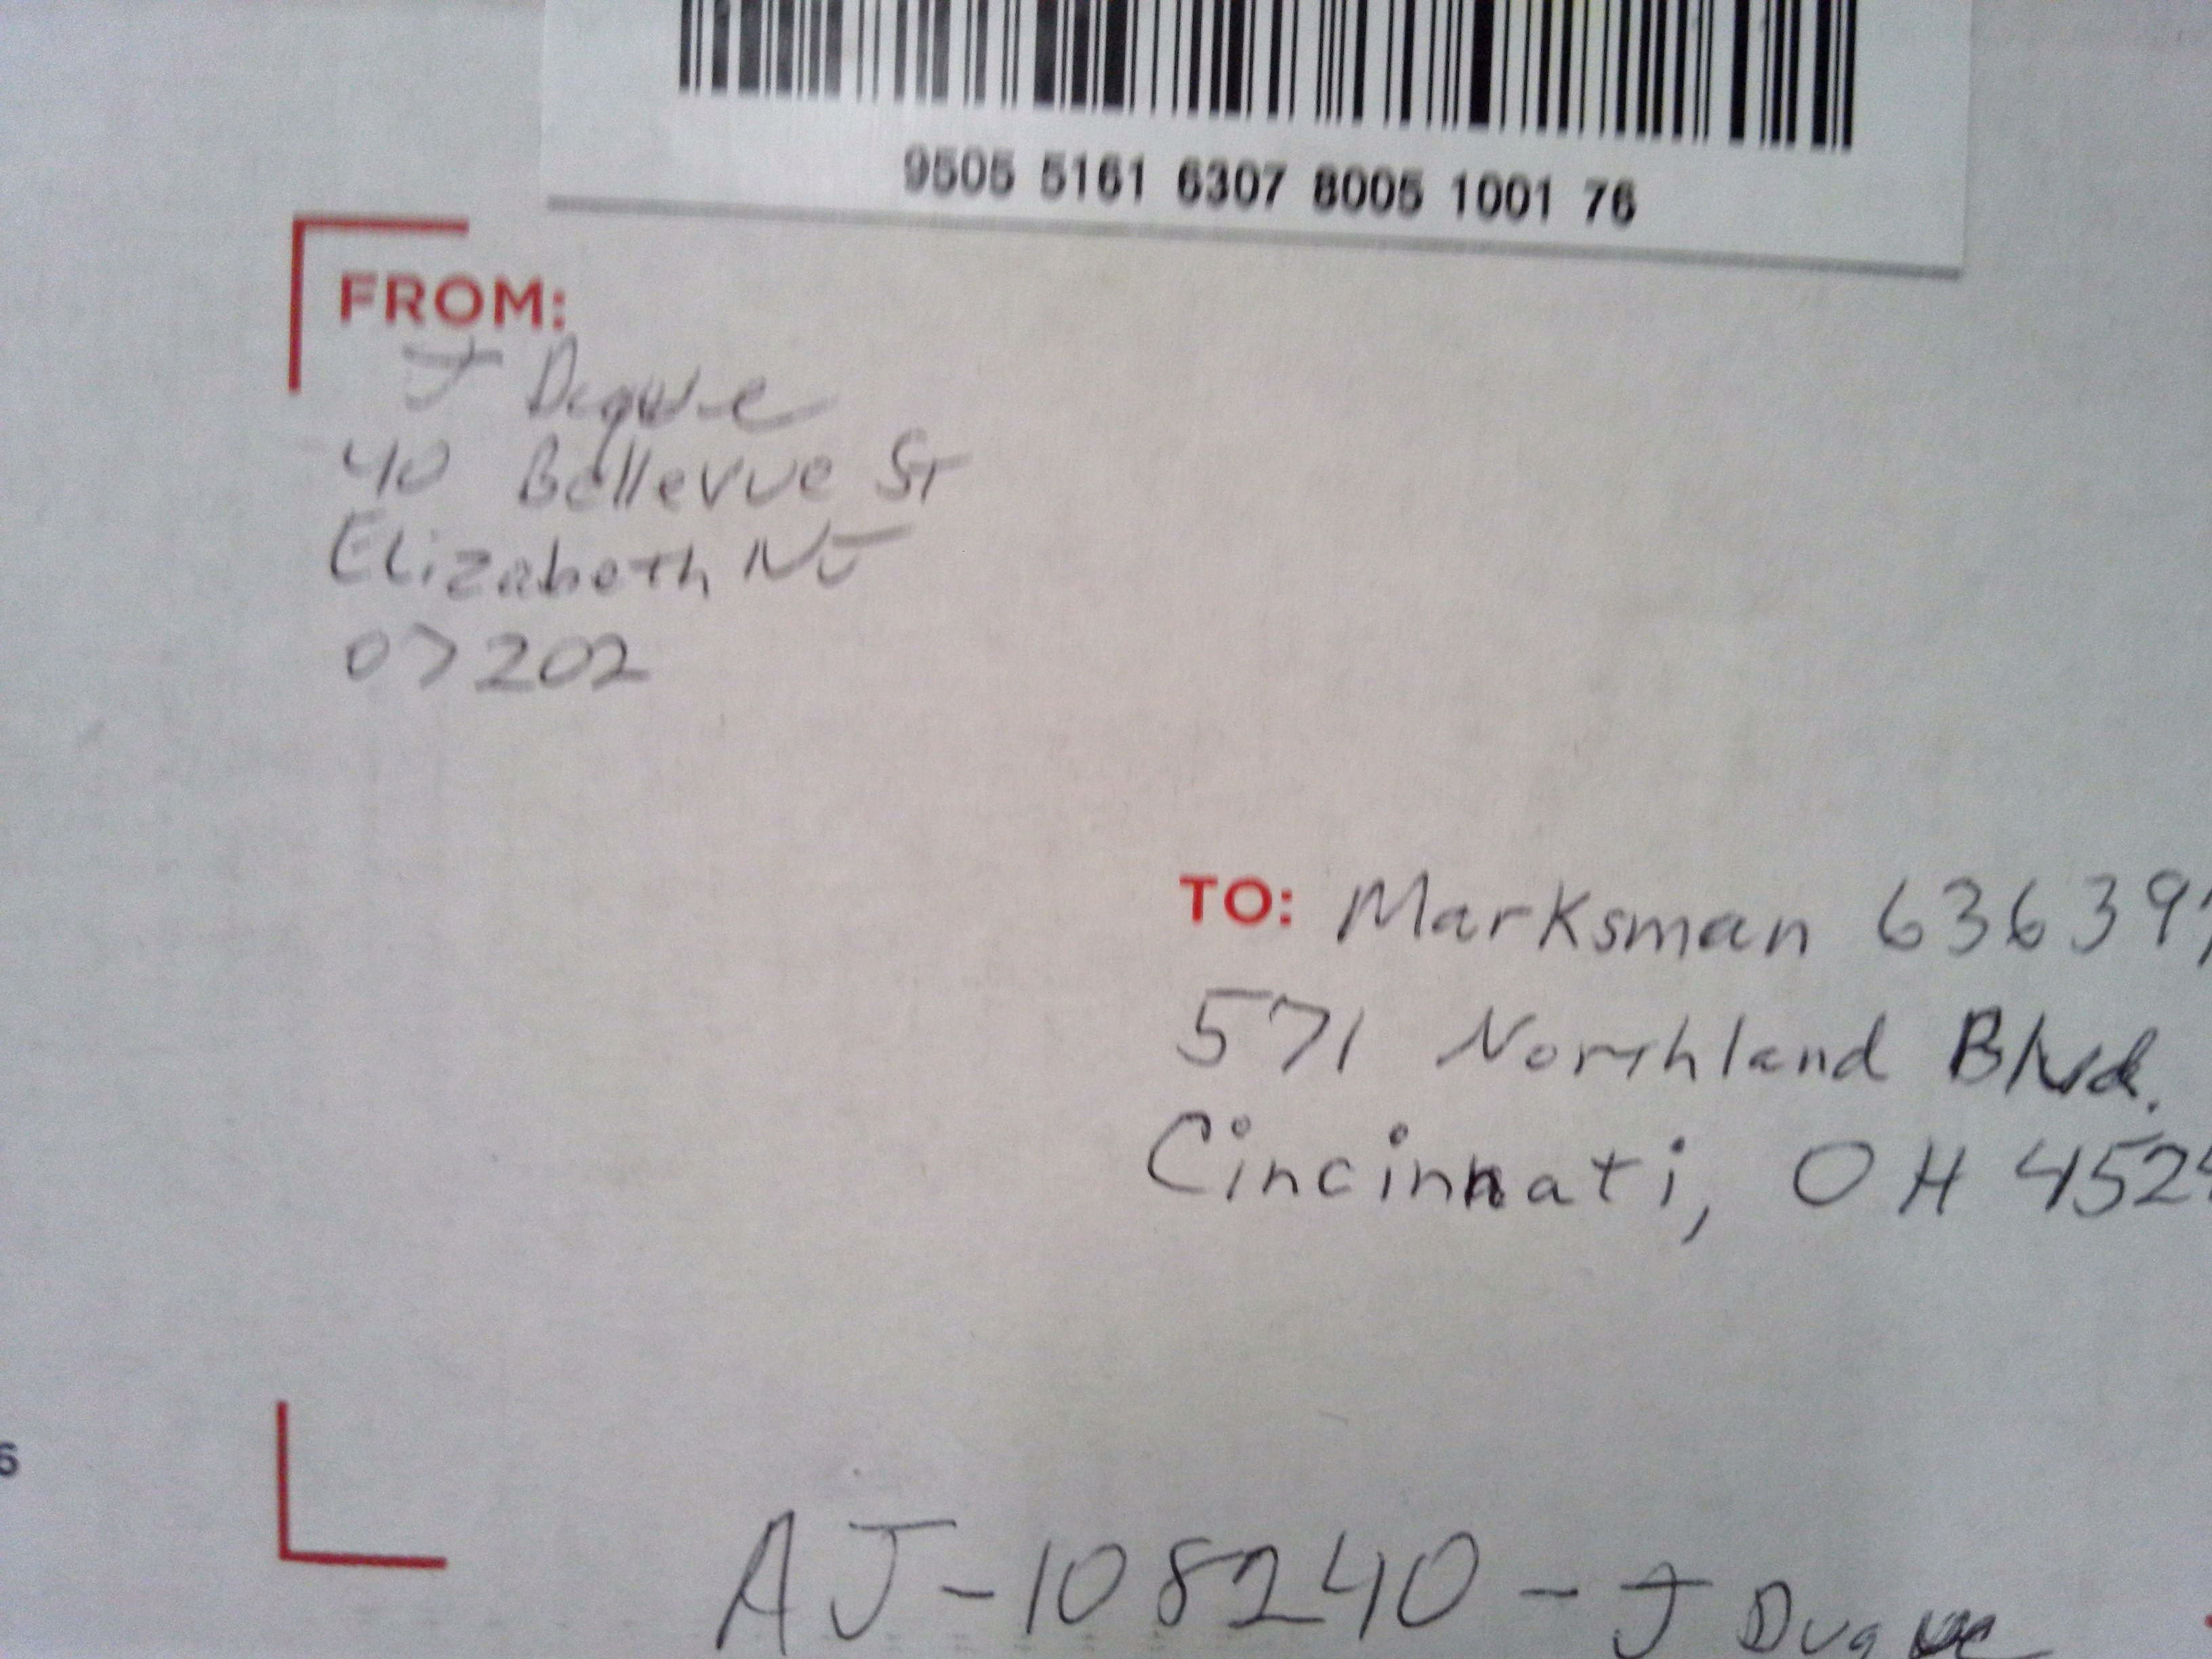 9505 5161 6307 8005 1001 76
FROM:
J Duque
40 Bellevue St
Elizabeth NJ
07202
TO: Marksman 63639
571 Northland Blvd.
Cincinnati, OH 452
6
AJ-108240-J Duque